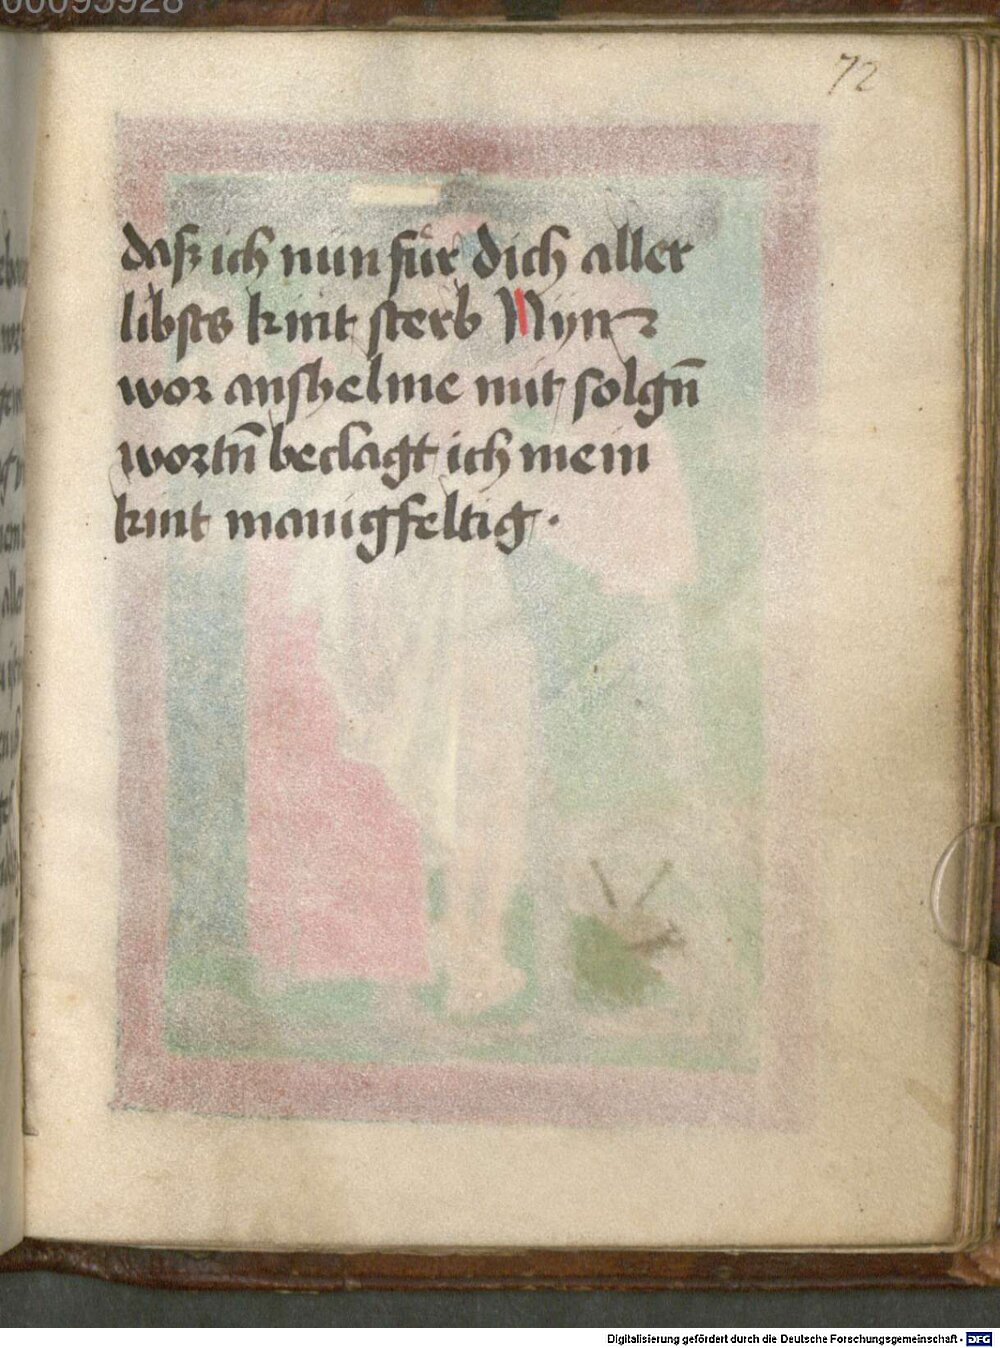 00095928
72
daß ich nun fur dich aller
libsts kint sterb Nym
wor anshelme mit solgn̄
wortn̄ beclagt ich mein
kint manigfeltig.
Digitalisierung gefördert durch die Deutsche Forschungsgemeinschaft - DFG